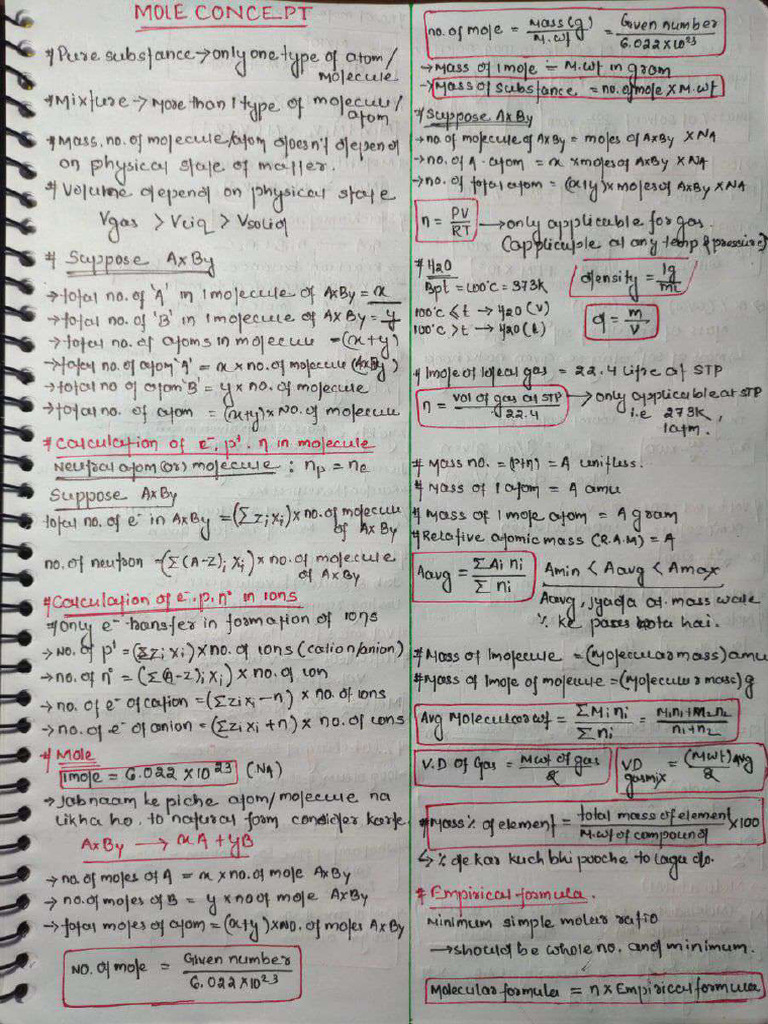 MOLE CONCEPT
# Pure substance → only one type of atom/
molecule
# Mixture → More than 1 type of molecule/
atom
# Mass, no. of molecule/atom doesn't depend
on physical state of matter.
# Volume depend on physical state
Vgas > Vliq > Vsolid
# Suppose AxBy
→ total no. of 'A' in 1 molecule of AxBy = x
→ total no. of 'B' in 1 molecule of AxBy = y
→ total no. of atoms in molecule = (x+y)
→ total no. of atom 'A' = x × no. of molecule (AxBy)
→ total no of atom 'B' = y × no. of molecule
→ total no. of atom = (x+y) × No. of molecule
# Calculation of e⁻, p⁺, n in molecule
Neutral atom (or) molecule : np = ne
Suppose AxBy
total no. of e⁻ in AxBy = (Σ zi xi) × no. of molecule
of AxBy
no. of neutron = (Σ (A-Z)i xi) × no. of molecule
of AxBy
# Calculation of e⁻, p, n° in ions
# Only e⁻ transfer in formation of ions
→ No. of p⁺ = (Σzi xi) × no. of ions (cation/anion)
→ no. of n° = (Σ(A-z)i xi) × no. of ion
→ no. of e⁻ of cation = (Σzi xi - n) × no. of ions
→ no. of e⁻ of anion = (Σzi xi + n) × no. of ions
# Mole
1mole = 6.022 × 10²³ (NA)
→ Jab naam ke piche atom/molecule na
likha ho. to natural form consider karte
AxBy → xA + yB
→ no. of moles of A = x × no. of mole AxBy
→ no. of moles of B = y × no of mole AxBy
→ total moles of atom = (x+y) × No. of moles AxBy
No. of mole = Given number / 6.022 × 10²³
no. of mole = Mass(g) / M.wt = Given number / 6.022 × 10²³
→ Mass of 1 mole = M.wt in gram
→ Mass of Substance = no. of mole × M.wt
# Suppose AxBy
→ no. of molecule of AxBy = moles of AxBy × NA
→ no. of A-atom = x × moles of AxBy × NA
→ no. of total atom = (x+y) × moles of AxBy × NA
n = PV / RT → only applicable for gas
(applicable at any temp & pressure)
# H2O
Bpt = 100°C = 373K
density = 1g / mL
100°C ≤ t → H2O (v)
100°C > t → H2O (l)
d = m / v
# 1mole of Ideal gas = 22.4 Litre at STP
n = vol of gas at STP / 22.4 → only applicable at STP
i.e 273K,
1atm.
# Mass no. = (P+n) = A unitless.
# Mass of 1 atom = A amu
# Mass of 1 mole atom = A gram
# Relative atomic mass (R.A.M) = A
Aavg = ΣAi ni / Σ ni Amin < Aavg < Amax
Aavg, jyada at. mass wale
% ke paas hota hai.
# Mass of 1molecule = (Molecular mass) amu
# Mass of 1mole of molecule = (Molecular mass) g
Avg Molecular wt = ΣMi ni / Σ ni = M1n1 + M2n2 / n1 + n2
V.D of Gas = Mwt of gas / 2
VD gas mix = (Mwt)avg / 2
# Mass % of element = total mass of element / M.wt of compound × 100
↳ % de kar kuch bhi pooche to laga do.
# Empirical formula.
Minimum simple molar ratio
→ should be whole no. and minimum.
Molecular formula = n × Empirical formula